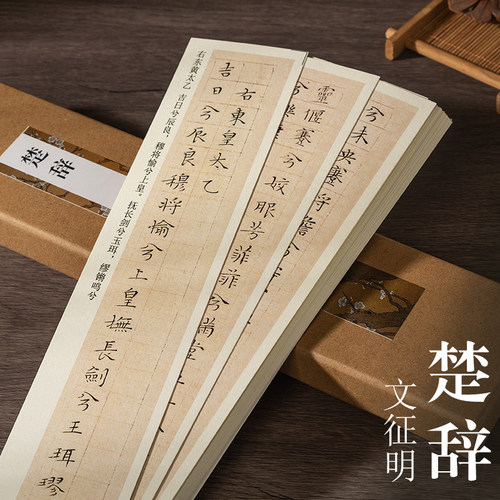 右东黄太乙 吉日兮辰良，穆将愉兮上皇。抚长剑兮玉珥，缪锵鸣兮
右東皇太乙
吉日兮辰良穆將愉兮上皇撫長劍兮王珥璆
靈偃蹇兮姣服芳菲菲兮滿堂
兮樂
兮未央蹇將憺兮
楚辞
楚辞
文征明